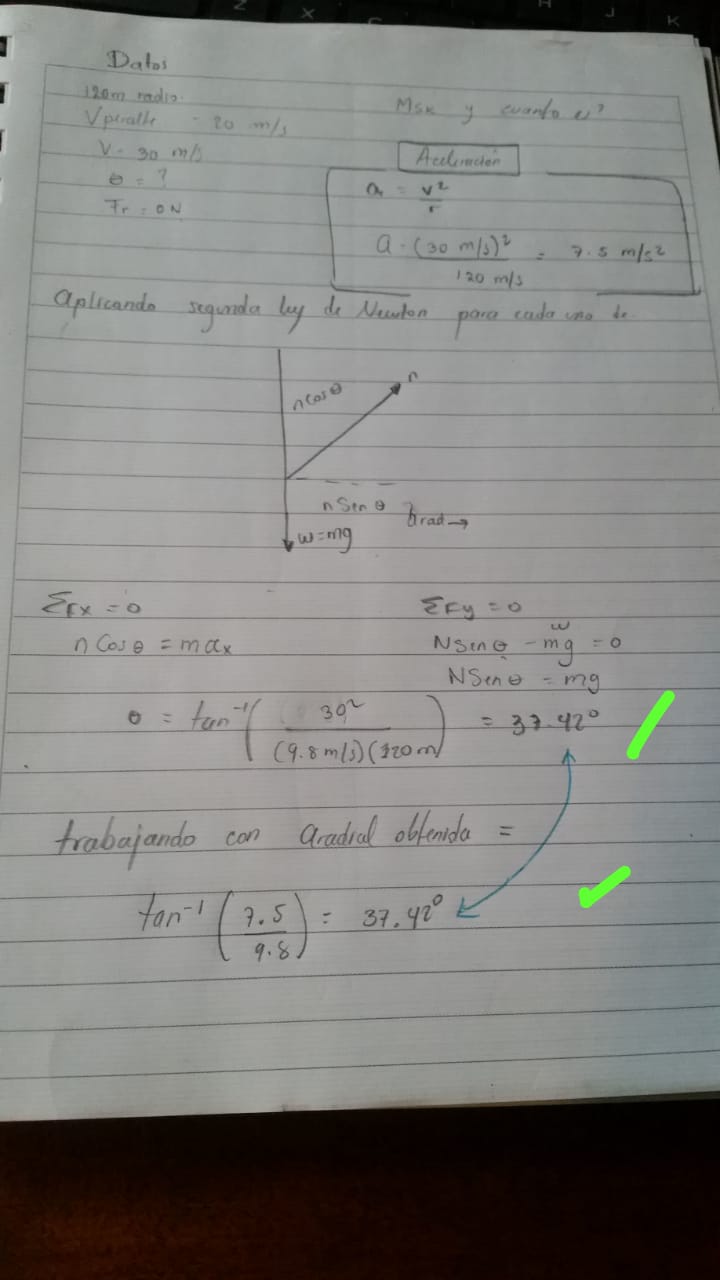 Datos
120m radio.
Vperalte - 20 m/s
V = 30 m/s
θ = ?
Fr = 0 N
Msk y cuanto es?
Aceleración
a = v²/r
a = (30 m/s)²/120 m/s = 7.5 m/s²
Aplicando segunda ley de Newton para cada uno de
n cos θ
n
n Sen θ
arad →
w=mg
ΣFx = 0
n Cos θ = m ax
ΣFy = 0
w
N Sen θ - mg = 0
N Sen θ = mg
θ = tan⁻¹(30²/(9.8 m/s)(120 m)) = 37.42°
trabajando con aradial obtenida =
tan⁻¹(7.5/9.8) = 37.42°
Z
X
H
J
K